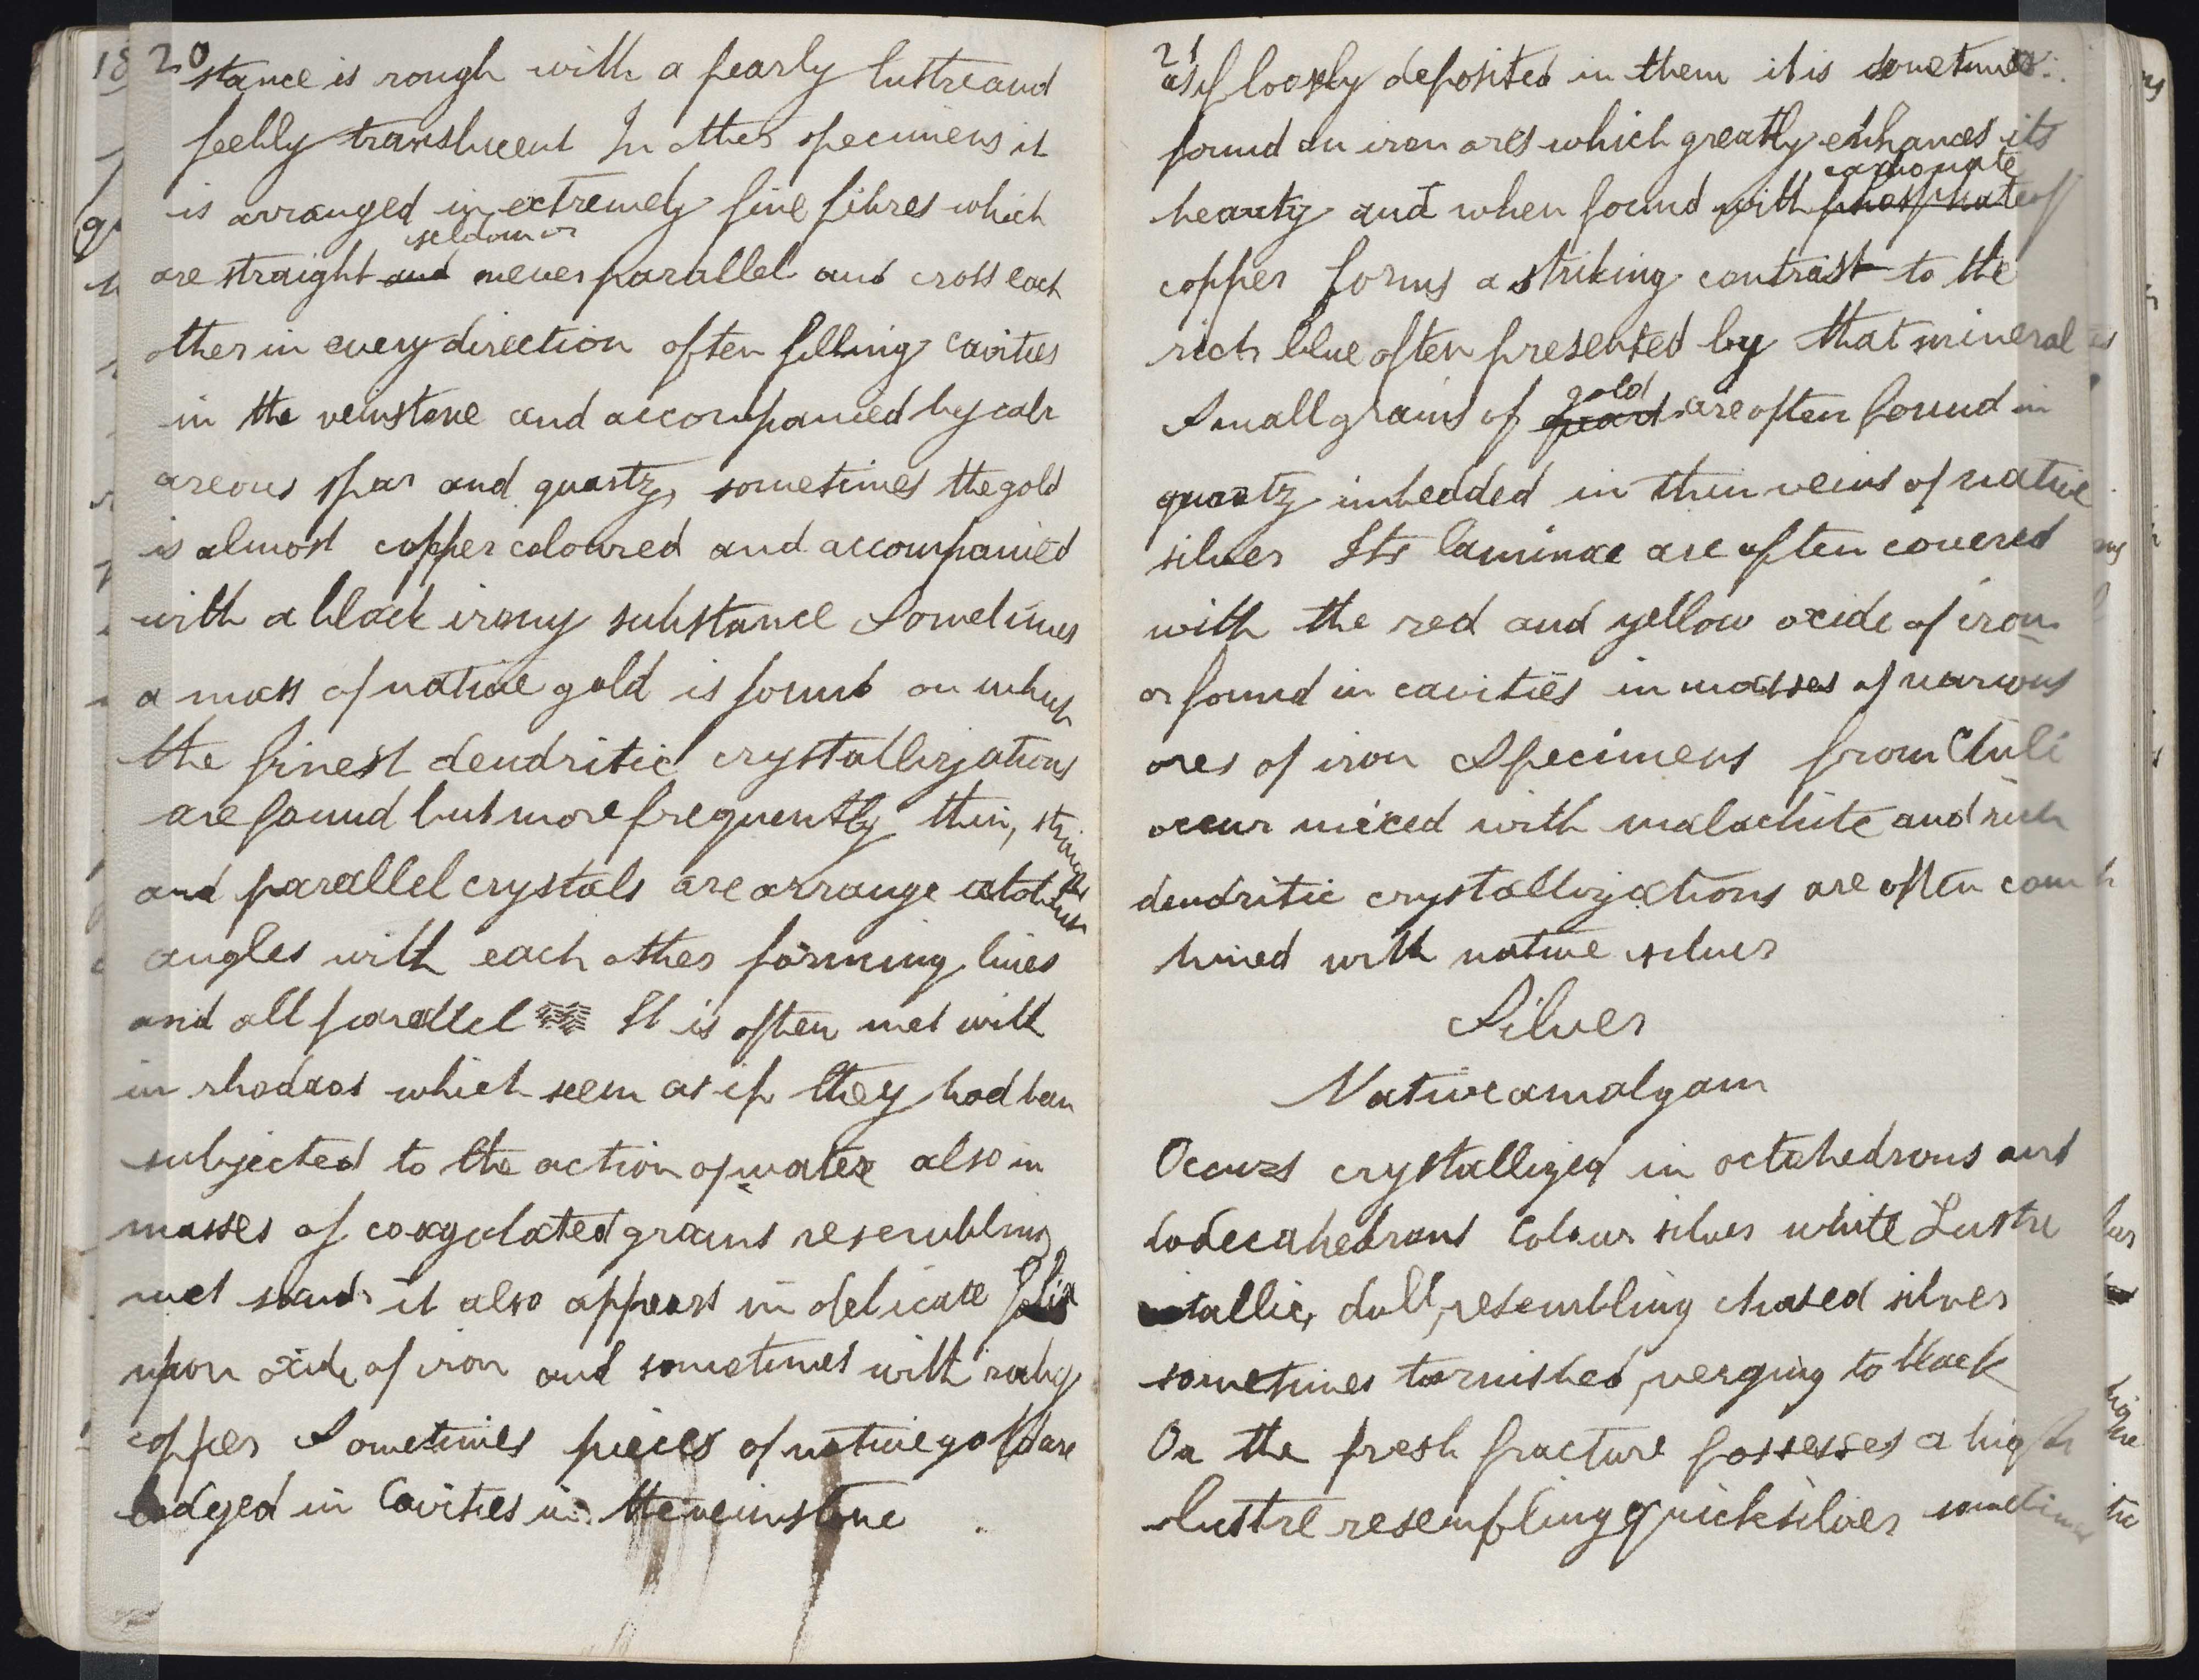 20
stance is rough with a pearly lustre and
feebly translucent In other specimens it
is arranged in extremely fine fibres which
seldom or
are straight and never parallel and cross each
other in every direction often filling cavities
in the veinstone and accompanied by calc
areous spar and quartz, sometimes the gold
is almost copper coloured and accompanied
with a black irony substance Sometimes
a mass of native gold is found on which
the finest dendritic crystallizations
are found but more frequently thin, straight
and parallel crystals are arrange at
angles with each other forming lines
and all parallel It is often met with
in which seem as if they had been
subjected to the action of water also in
masses of coagulated grains resembling
wet sand it also appears in delicate folia
upon oxide of iron and sometimes with ruby
copper Sometimes pieces of native gold are
lodged in Cavities in the veinstone
21
as if loosely deposited in them it is sometimes
found on iron ores which greatly enhances its
carbonate
beauty and when found with phosphate of
copper forms a striking contrast to the
rich blue often presented by that mineral
gold
Small grains of are often found in
quartz imbedded in thin veins of native
silver Its laminae are often covered
with the red and yellow oxide of iron
or found in cavities in masses of various
ores of iron Specimens from Chili
occur mixed with malachite and rich
dendritic crystallizations are often com
bined with native silver
Silver
Native amalgam
Occurs crystallized in octahedrons and
dodecahedrons Colour silver white Lustre
tallic, dull, resembling chased silver
sometimes tarnished, verging to black
On the fresh fracture possesses a high
lustre resembling quicksilver sometimes